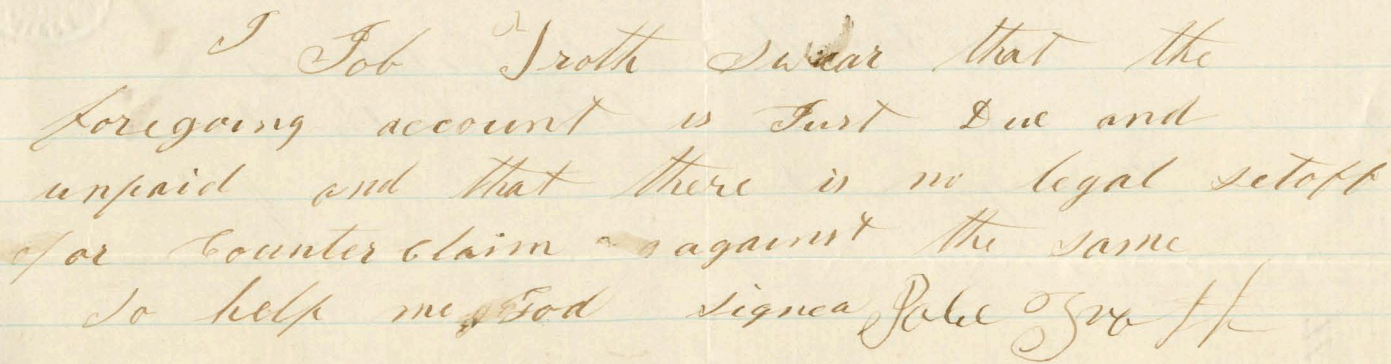 I Job Troth swear that the
foregoing account is Just Due and
unpaid and that there is no legal setoff
or Counter claim against the same
So help me God signed